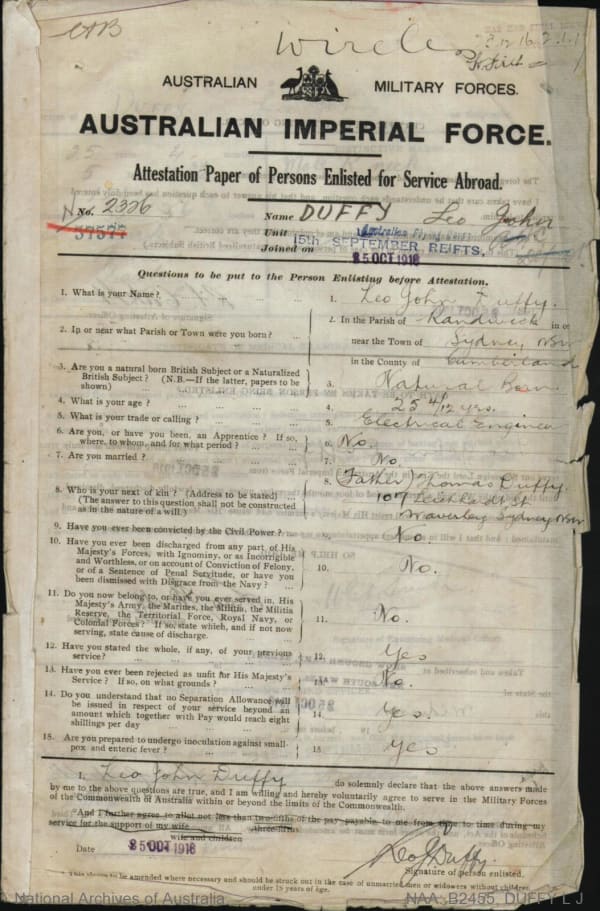 wirele
AUSTRALIAN MILITARY FORCES.
AUSTRALIAN IMPERIAL FORCE.
Attestation Paper of Persons Enlisted for Service Abroad.
No. 2326
Name DUFFY Leo John
37577
Unit Australian Flying
15th SEPTEMBER REIFTS.
Joined on 25 OCT 1916
Questions to be put to the Person Enlisting before Attestation.
1. What is your Name? 1. Leo John Duffy.
2. In or near what Parish or Town were you born? 2. In the Parish of Randwick in or
near the Town of Sydney NSW
in the County of Cumberland
3. Are you a natural born British Subject or a Naturalized
British Subject? (N.B.—If the latter, papers to be
shown) 3. Natural Born
4. What is your age? 4. 25 4/12 yrs.
5. What is your trade or calling? 5. Electrical Engineer
6. Are you, or have you been, an Apprentice? If so,
where, to whom, and for what period? 6. No.
7. Are you married? 7. No.
8. Who is your next of kin? (Address to be stated)
(The answer to this question shall not be construed
as in the nature of a will) 8. (Father) Thomas Duffy.
107 Leichhardt St
Waverley Sydney NSW
9. Have you ever been convicted by the Civil Power? 9. No.
10. Have you ever been discharged from any part of His
Majesty's Forces, with Ignominy, or as Incorrigible
and Worthless, or on account of Conviction of Felony,
or of a Sentence of Penal Servitude, or have you
been dismissed with Disgrace from the Navy? 10. No.
11. Do you now belong to, or have you ever served in, His
Majesty's Army, the Marines, the Militia, the Militia
Reserve, the Territorial Force, Royal Navy, or
Colonial Forces? If so, state which, and if not now
serving, state cause of discharge. 11. No.
12. Have you stated the whole, if any, of your previous
service? 12. Yes
13. Have you ever been rejected as unfit for His Majesty's
Service? If so, on what grounds? 13. No.
14. Do you understand that no Separation Allowance will
be issued in respect of your service beyond an
amount which together with Pay would reach eight
shillings per day 14. Yes.
15. Are you prepared to undergo inoculation against small-
pox and enteric fever? 15 Yes
I, Leo John Duffy do solemnly declare that the above answers made
by me to the above questions are true, and I am willing and hereby voluntarily agree to serve in the Military Forces
of the Commonwealth of Australia within or beyond the limits of the Commonwealth.
And I further agree to allot not less than two-fifths of the pay payable to me from time to time during my
three-fifths
service for the support of my wife
wife and children
Date 25 OCT 1916
Leo J Duffy.
Signature of person enlisted.
This clause to be amended where necessary and should be struck out in the case of unmarried men or widowers without children
under 18 years of age.
National Archives of Australia
NAA: B2455, DUFFY L J